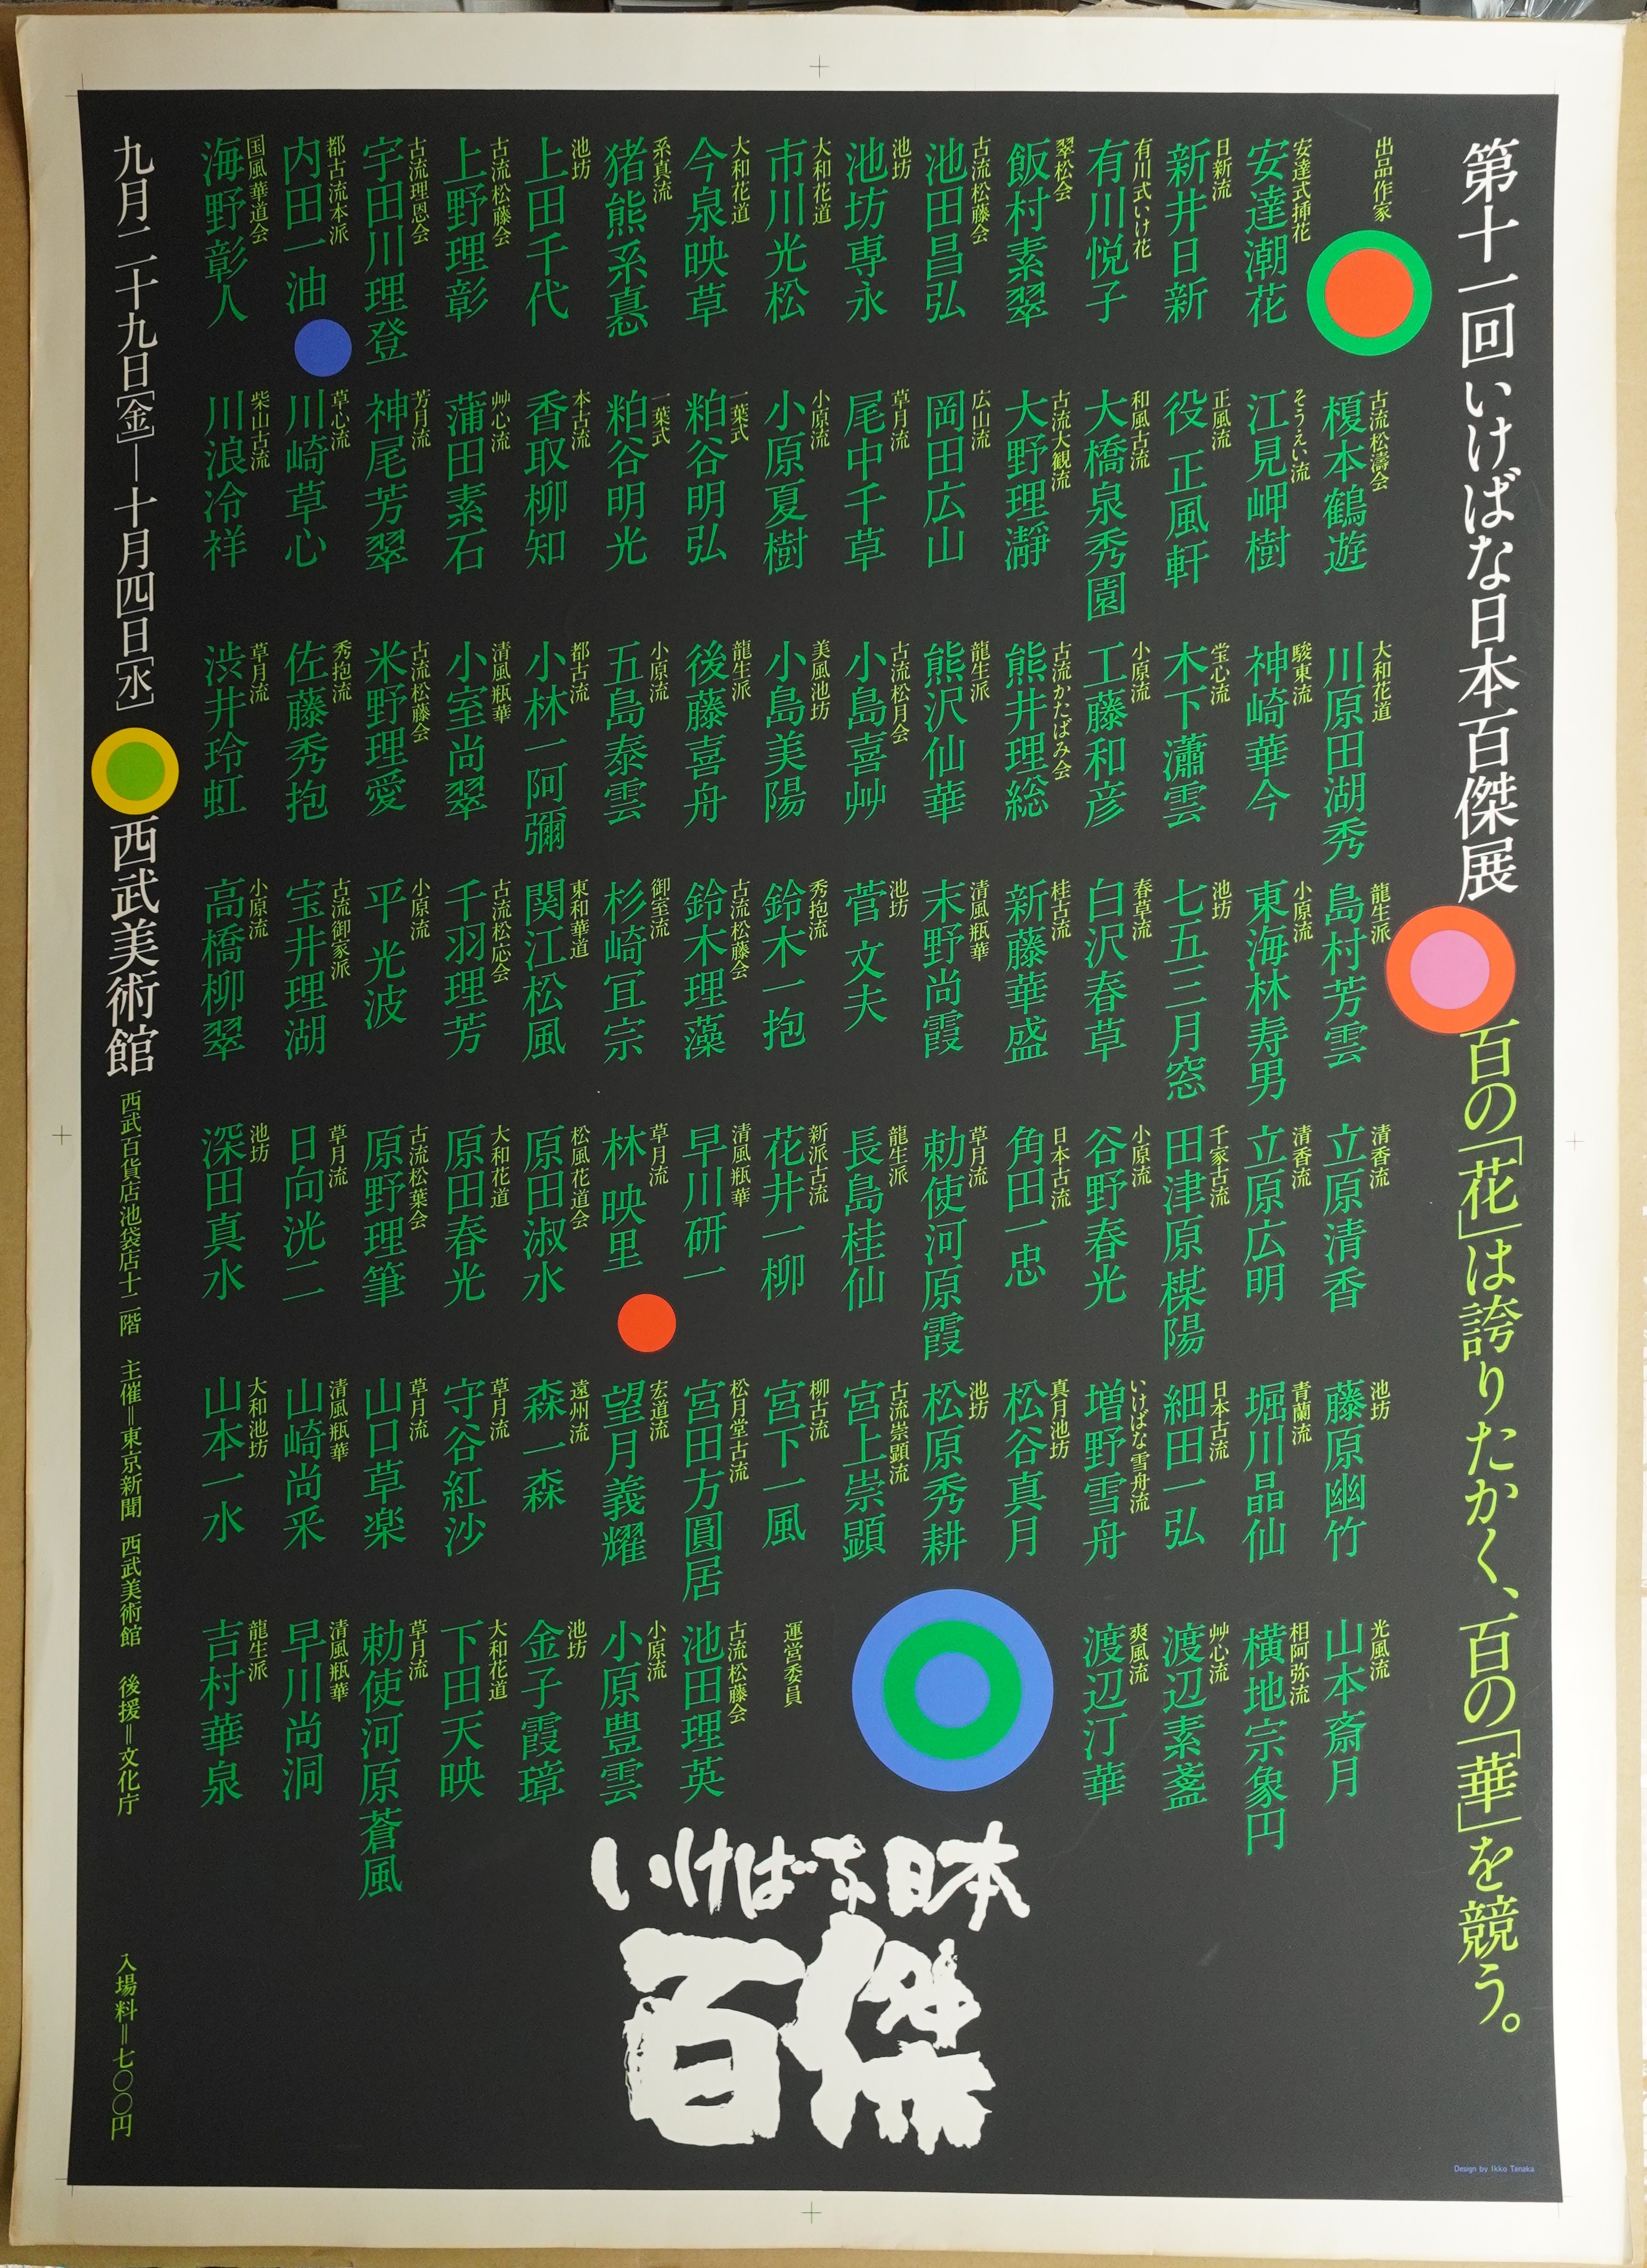 第十一回いけばな日本百傑展
百の「花」は誇りたかく、百の「華」を競う。
出品作家
安達式挿花
安達潮花
日新流
新井日新
有川式いけ花
有川悦子
翠松会
飯村素翠
古流松藤会
池田昌弘
池坊
池坊専永
大和花道
市川光松
大和花道
今泉映草
系真流
猪熊系惪
池坊
上田千代
古流松藤会
上野理彰
古流理恩会
宇田川理登
都古流本派
内田一油
国風華道会
海野彰人
古流松濤会
榎本鶴遊
そうえい流
江見岬樹
正風流
役正風軒
和風古流
大橋泉秀園
古流大観流
大野理瀞
広山流
岡田広山
草月流
尾中千草
小原流
小原夏樹
一葉式
粕谷明弘
一葉式
粕谷明光
本古流
香取柳知
艸心流
蒲田素石
芳月流
神尾芳翠
草心流
川崎草心
柴山古流
川浪冷祥
大和花道
川原田湖秀
駿東流
神崎華今
宝心流
木下瀟雲
小原流
工藤和彦
古流かたばみ会
熊井理総
龍生派
熊沢仙華
古流松月会
小島喜艸
美風池坊
小島美陽
龍生派
後藤喜舟
小原流
五島泰雲
都古流
小林一阿彌
清風瓶華
小室尚翠
古流松藤会
米野理愛
秀抱流
佐藤秀抱
草月流
渋井玲虹
龍生派
島村芳雲
小原流
東海林寿男
池坊
七五三月窓
春草流
白沢春草
桂古流
新藤華盛
清風瓶華
末野尚霞
池坊
菅文夫
秀抱流
鈴木一抱
古流松藤会
鈴木理藻
御室流
杉崎宜宗
東和華道
関江松風
古流松応会
千羽理芳
小原流
平光波
古流御家派
宝井理湖
小原流
高橋柳翠
清香流
立原清香
清香流
立原広明
千家古流
田津原楳陽
小原流
谷野春光
日本古流
角田一忠
草月流
勅使河原霞
龍生派
長島桂仙
新派古流
花井一柳
清風瓶華
早川研一
草月流
林映里
松風花道会
原田淑水
大和花道
原田春光
古流松葉会
原野理筆
草月流
日向洸二
池坊
深田真水
池坊
藤原幽竹
青蘭流
堀川晶仙
日本古流
細田一弘
いけばな雪舟流
増野雪舟
真月池坊
松谷真月
池坊
松原秀耕
古流崇顕流
宮上崇顕
柳古流
宮下一風
松月堂古流
宮田方圓居
宏道流
望月義耀
遠州流
森一森
草月流
守谷紅沙
草月流
山口草楽
清風瓶華
山崎尚采
大和池坊
山本一水
光風流
山本斎月
相阿弥流
横地宗象円
艸心流
渡辺素盞
爽風流
渡辺汀華
運営委員
古流松藤会
池田理英
小原流
小原豊雲
池坊
金子霞璋
大和花道
下田天映
草月流
勅使河原蒼風
清風瓶華
早川尚洞
龍生派
吉村華泉
九月二十九日[金]—十月四日[水]
西武美術館
西武百貨店池袋店十二階 主催=東京新聞 西武美術館 後援=文化庁
入場料=七〇〇円
いけばな日本
百傑
Design by Ikko Tanaka